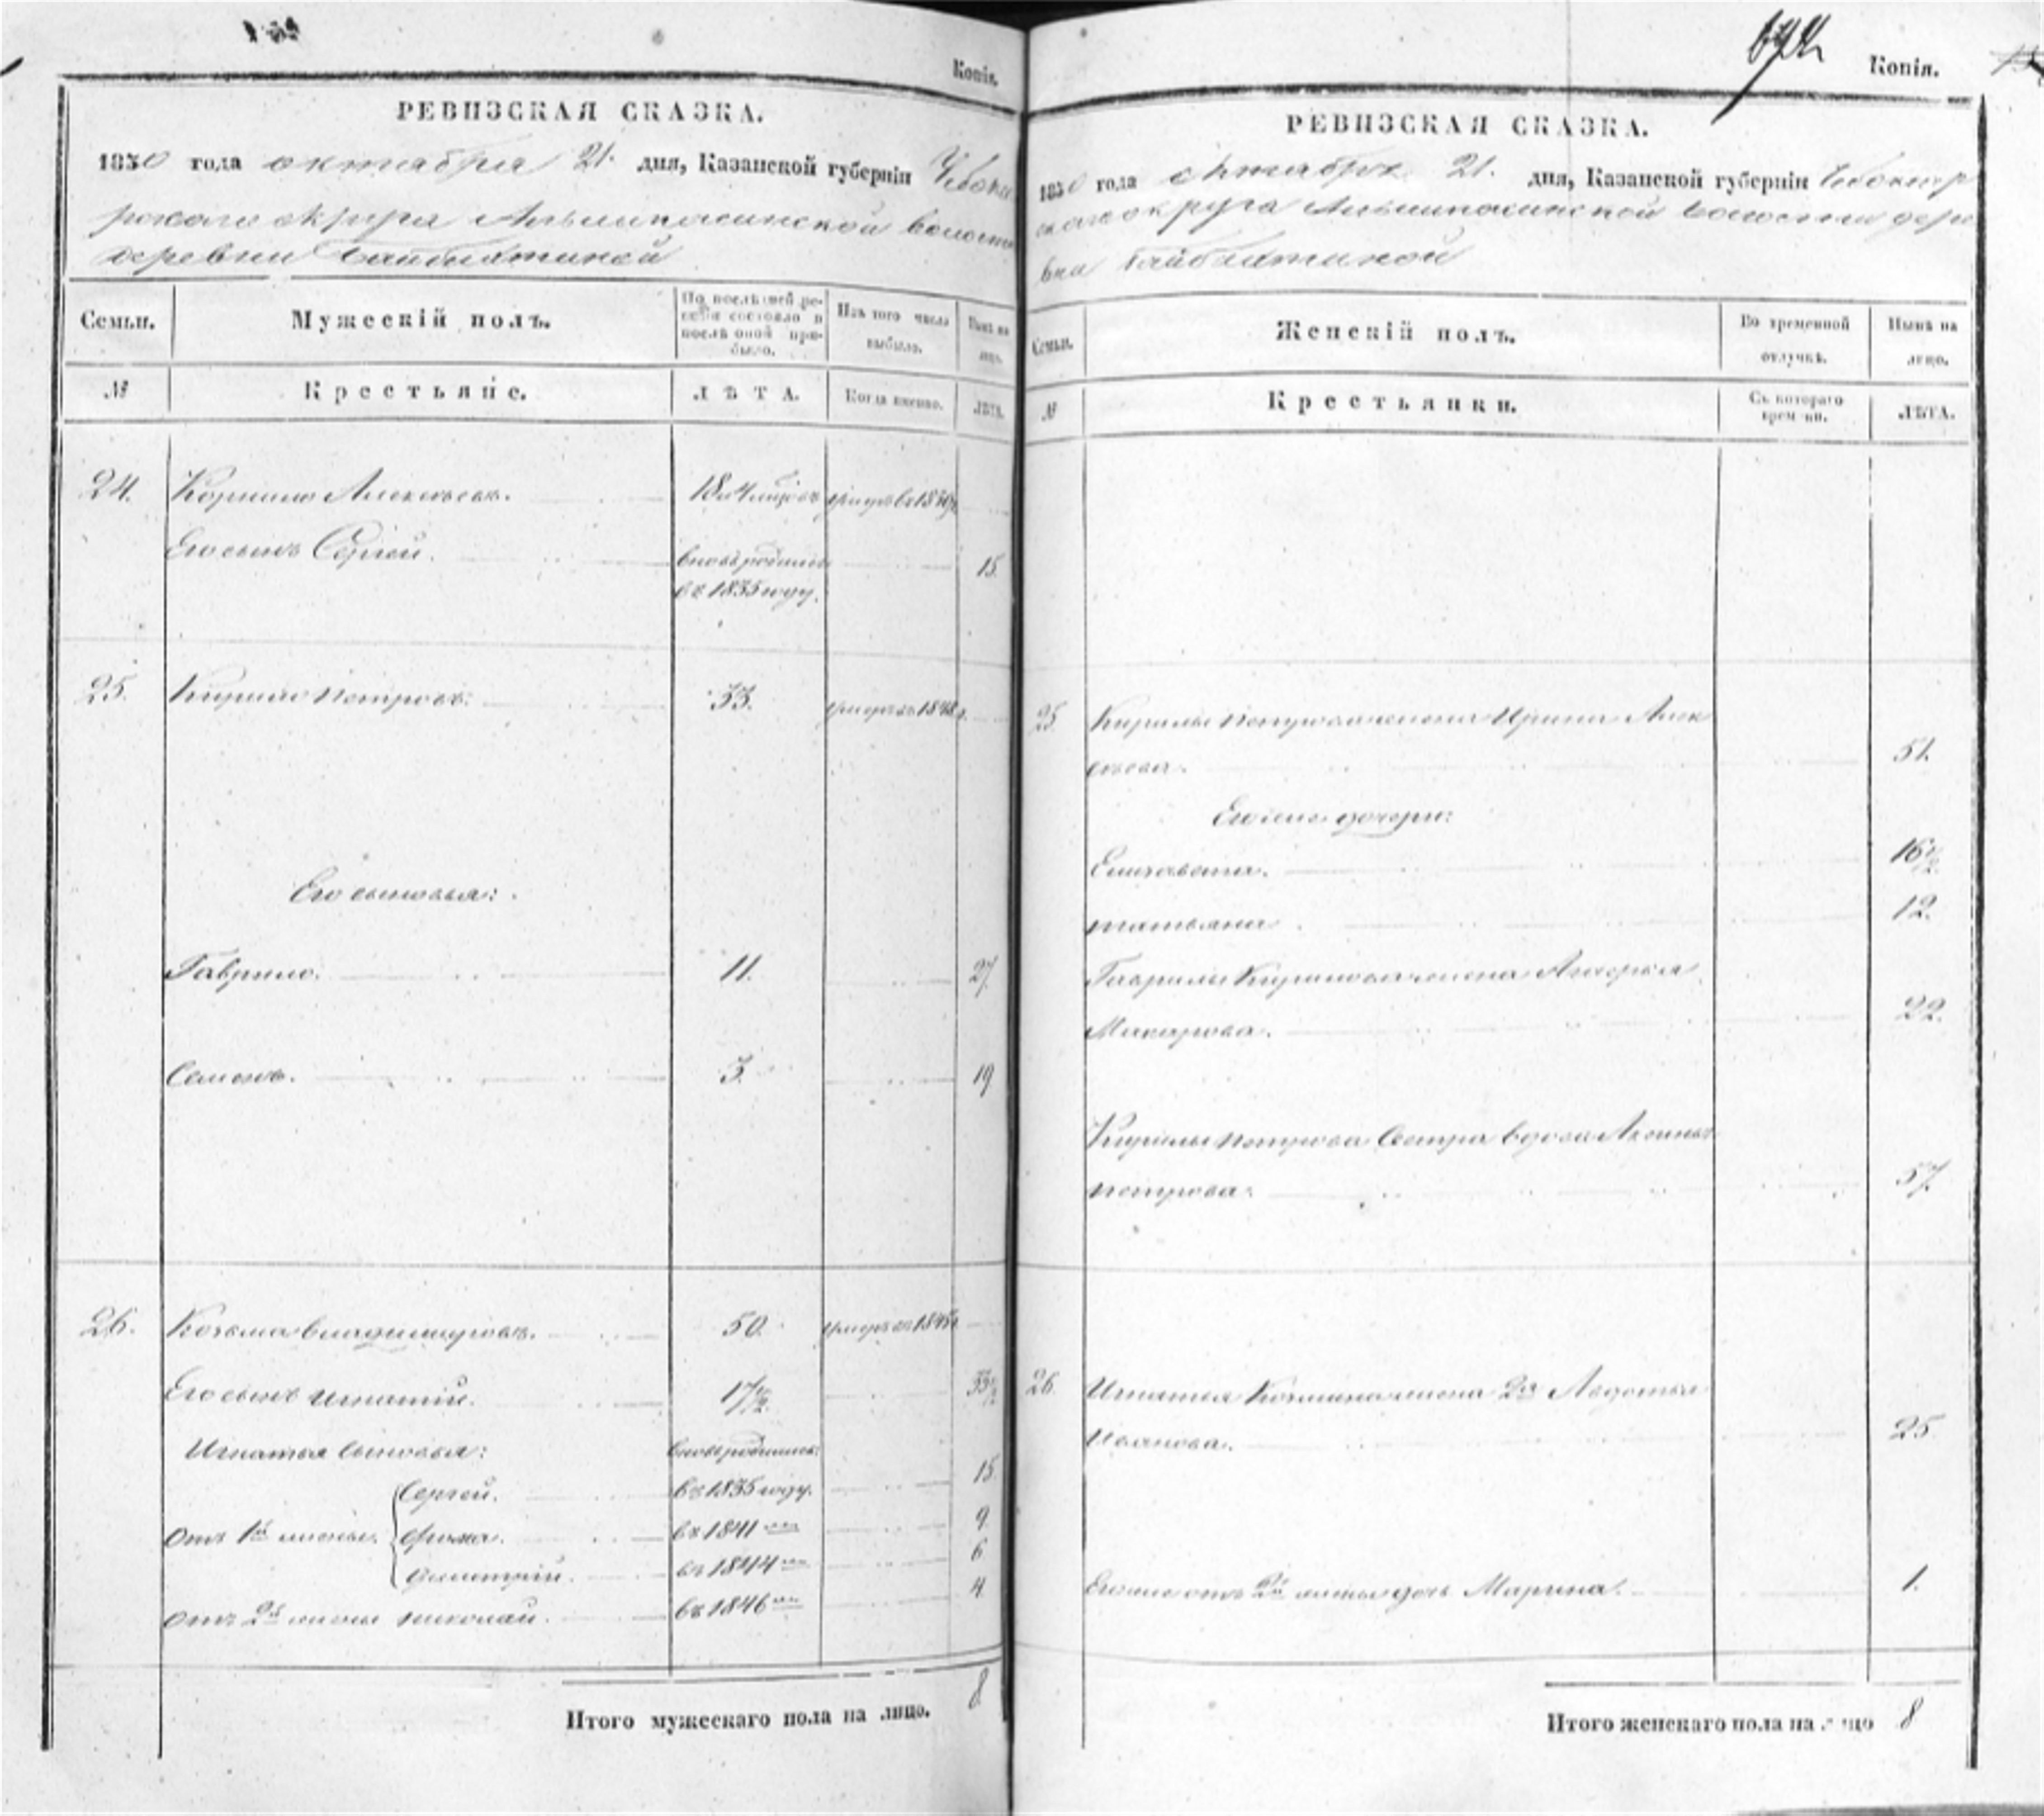 Копія.
РЕВИЗСКАЯ СКАЗКА.
1850 года октября 21. дня, Казанской губерніи Чебокса
рскаго округа волости
деревни Байбахтиной
Семьи. Мужескій полъ. По послѣдней ре-
визіи состояло и
послѣ оной при-
было. Изъ того числа
выбыло. Нынѣ на
лицо.
№ Крестьяне. ЛѢТА. Когда именно. ЛѢТА.
24. Корнило Алексѣевъ. 18 4 умеръ въ
Его сынъ Сергѣй. вновь родился 15.
въ 1835 году.
25. Кирило Петровъ. 33. умеръ въ 1848 г.
Его сыновья:
Гаврило. 11. 27.
Семенъ. 3. 19
26. Козьма Владимировъ. 50. умеръ въ
Его сынъ Игнатій. 17 1/2. 33 1/2
Игнатья сыновья: вновь родились:
Сергѣй. въ 1835 году. 15.
отъ 1й жены. Фома. въ 1841 мъ 9.
Дмитрій. въ 1844 мъ 6
отъ 2й жены Николай. въ 1846 мъ 4
Итого мужескаго пола на лицо. 8
672
Копія.
РЕВИЗСКАЯ СКАЗКА.
1850 года октября 21. дня, Казанской губерніи Чебоксар
скаго округа волости дере
вни Байбахтиной
Семьи. Женскій полъ. Во временной
отлучкѣ. Нынѣ на
лицо.
№ Крестьянки. Съ котораго
времени. ЛѢТА.
25. Кирилы Петрова жена Ирина Алек
сѣева. 51.
Его же дочери:
Елизавета. 16 1/2
Татьяна. 12.
Гаврилы Кирилова жена
Макарова. 22.
Кирилы Петрова сестра вдова
Петрова. 57.
26. Игнатья Козмина жена 2я Авдотья
Иванова. 25
Его же отъ 2й жены дочь Марина. 1.
Итого женскаго пола на лицо 8